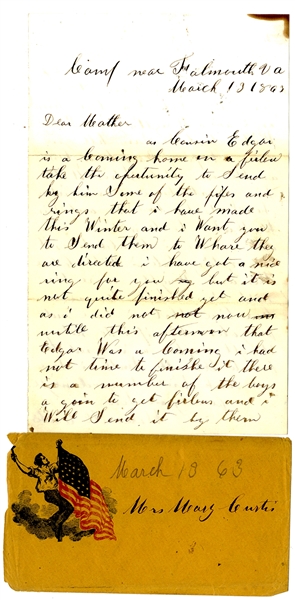 Camp near Falmouth Va
March 13 1863
Dear Mother
as Cousin Edgar
is a Coming home on a firlew
take the opertunity to Send
by him Some of the pipes and
rings that i have made
this Winter and i Want you
to Send them to Whare they
are directed i have got a nice
ring for you but it is
not quite finished yet and
as i did not not now
untill this afternoon that
Edgar Was a Coming i had
not time to finishe it there
is a number of the boys
a goin to get firlews and i
Will Send it by them
March 13 63
Mrs Mary Curtis